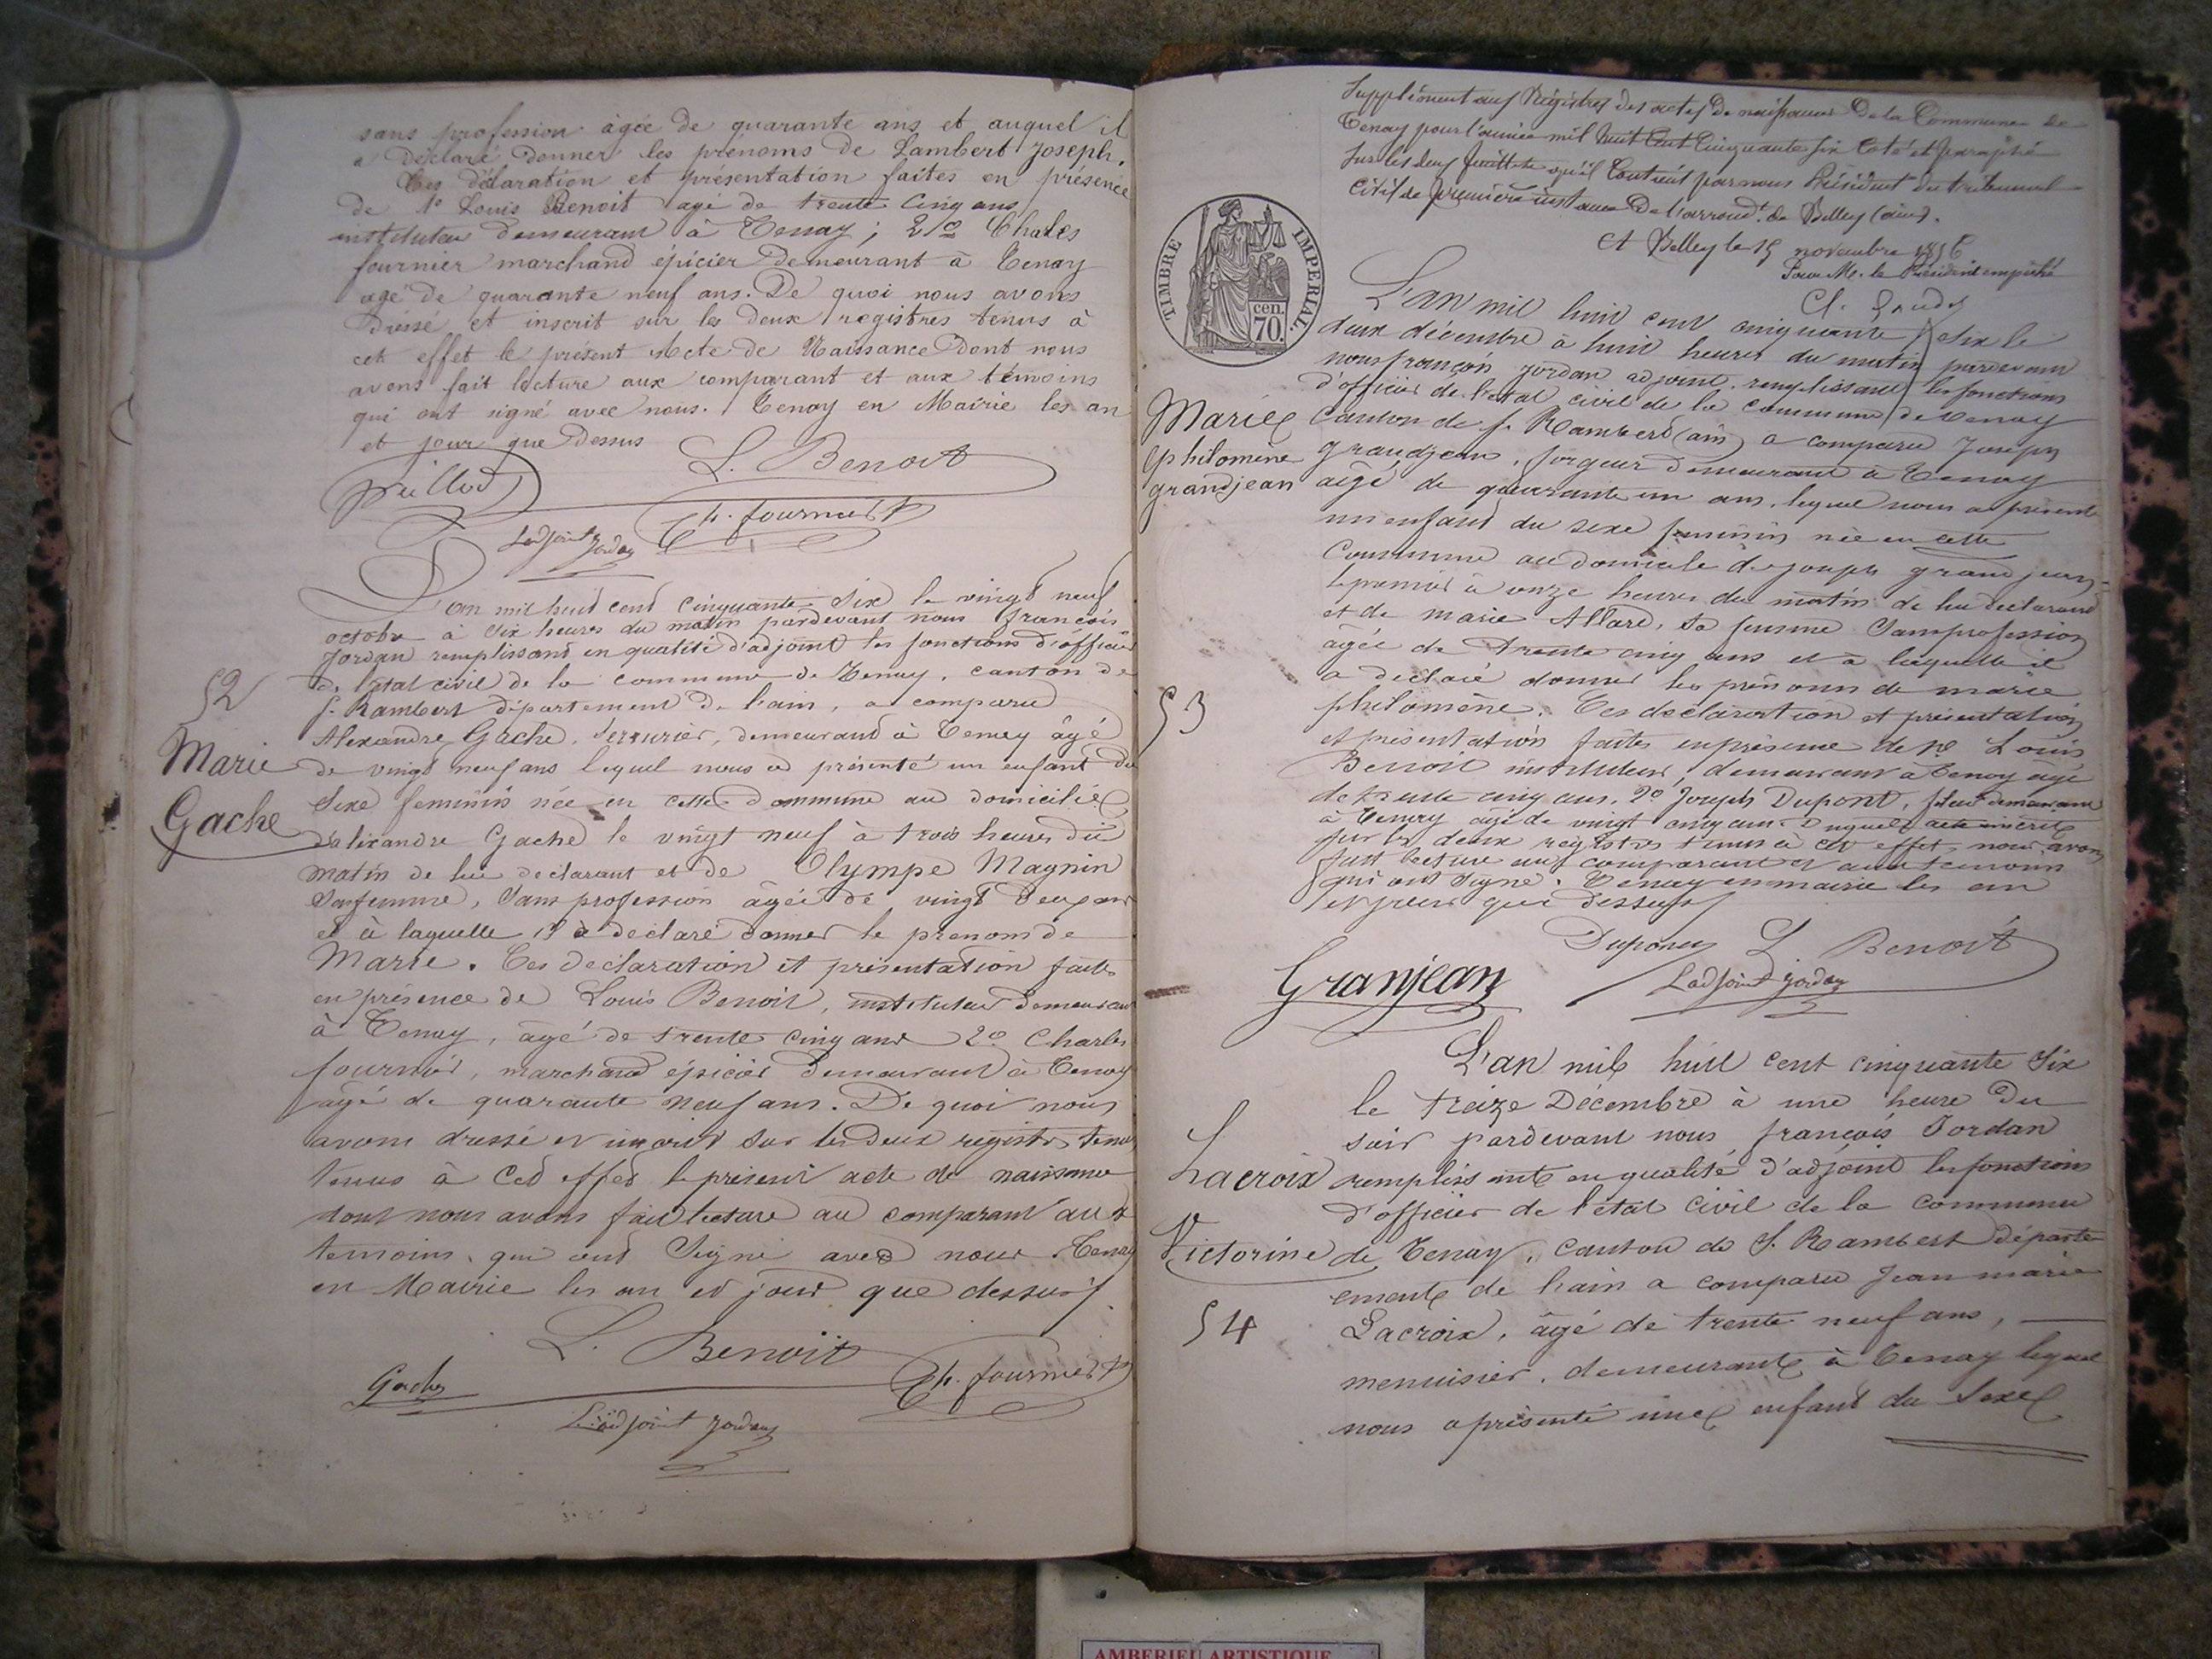 sans profession âgée de quarante ans et auquel il
a déclaré donner les prénoms de Lambert Joseph.
Ces déclaration et présentation faites en présence
de 1o Louis Benoit agé de trente cinq ans
instituteur demeurant à Tenay; 2o Chales
fournier marchand épicier demeurant à Tenay
agé de quarante neuf ans. De quoi nous avons
dréssé et inscrit sur les deux registres tenus à
cet effet le présent Acte de Naissance dont nous
avons fait lecture aux comparant et aux témoins
qui ont signé avec nous. Tenay en Mairie les an
et jour que dessus
L. Benoit
Ch. fournier
Ladjoint Jordan
L'an mil huit cent cinquante Six le vingt neuf
octobre à Six heures du matin pardevant nous françois
Jordan remplissant en qualité d'adjoint les fonctions d'officier
de l'état civil de la commune de Tenay, canton de
St. Rambert département de l'ain, a comparu
Alexandre Gache, Serrurier, demeurant à Tenay âgé
de vingt neuf ans lequel nous a présenté un enfant du
Sexe feminin née en cette commune au domicilie
d'alixandre Gache le vingt neuf à trois heures du
matin de lui declarant et de Olympe Magnin
Sa femme, Sans profession âgée de vingt deux ans
et à laquelle il à déclaré donner le prenom de
Marie. Ces declaration et présentation faites
en présence de Louis Benoit, instituteur demeurant
à Tenay, agé de trente cinq ans 2o Charles
fournier, marchand épicier demeurant à Tenay
âgé de quarante neuf ans. De quoi nous
avons dressé et inscrit sur les deux registres tenus
tenus à cet effet le présent acte de naissance
dont nous avons fait lecture au comparant aux
temoins qui ont Signé avec nous Tenay
en Mairie les an et jour que dessus
52
Marie
Gache
L. Benoit
Gache
Ch. fournier
L'adjoint Jordan
Supplément aux Régistres des actes de naissance de la Commune de
Tenay pour l'année mil huit Cent Cinquante Six Coté et paraphé
Sur les deux feuillets qu'il Contient par nous Président du tribunal
Civil de première instance de l'arrondt. de Belley (ain).
A Belley le 15 novembre 1856
Pour Mr. le Président empêché
TIMBRE IMPERIAL
cen.
70.
L'an mil huit cent cinquante Six le
deux décembre à huit heures du matin pardevant
nous françois Jordan adjoint remplissant les fonctions
d'officier de l'état civil de la commune de Tenay
canton de St. Rambert (ain) a comparu Joseph
grandjean, forgeur demeurant à Tenay
âgé de quarante un ans, lequel nous a présenté
un enfant du sexe feminin née en cette
Commune au domicile de joseph grandjean
le premier à onze heures du matin de lui declarant
et de marie Allard, sa femme Sans profession
agée de trente cinq ans et à laquelle il
a déclaré donner les prénoms de marie
philomène. Ces declaration et présentation
et présentation faites en présence de 1o Louis
Benoit instituteur, demeurant à Tenay âgé
de trente cinq ans, 2o Joseph Dupont, demeurant
à Tenay agé de vingt cinq ans
sur les deux registres tenus à cet effet, nous avons
fait lecture aux comparant et aux temoins
qui ont Signé. Tenay en mairie les an
et jour que dessus
Marie
philomène
grandjean
53
Dupont L Benoit
Granjean
Ladjoint jordan
L'an mil huit cent cinquante Six
le treize Décembre à une heure du
soir pardevant nous françois Jordan
remplissant en qualité d'adjoint les fonctions
d'officier de l'état civil de la commune
de Tenay, canton de St. Rambert départe
ement de l'ain a comparu Jean marie
Lacroix, âgé de trente neuf ans,
menuisier, demeurant à Tenay lequel
nous a présenté une enfant du Sexe
Lacroix
Victorine
54
AMBERIEU ARTISTIQUE